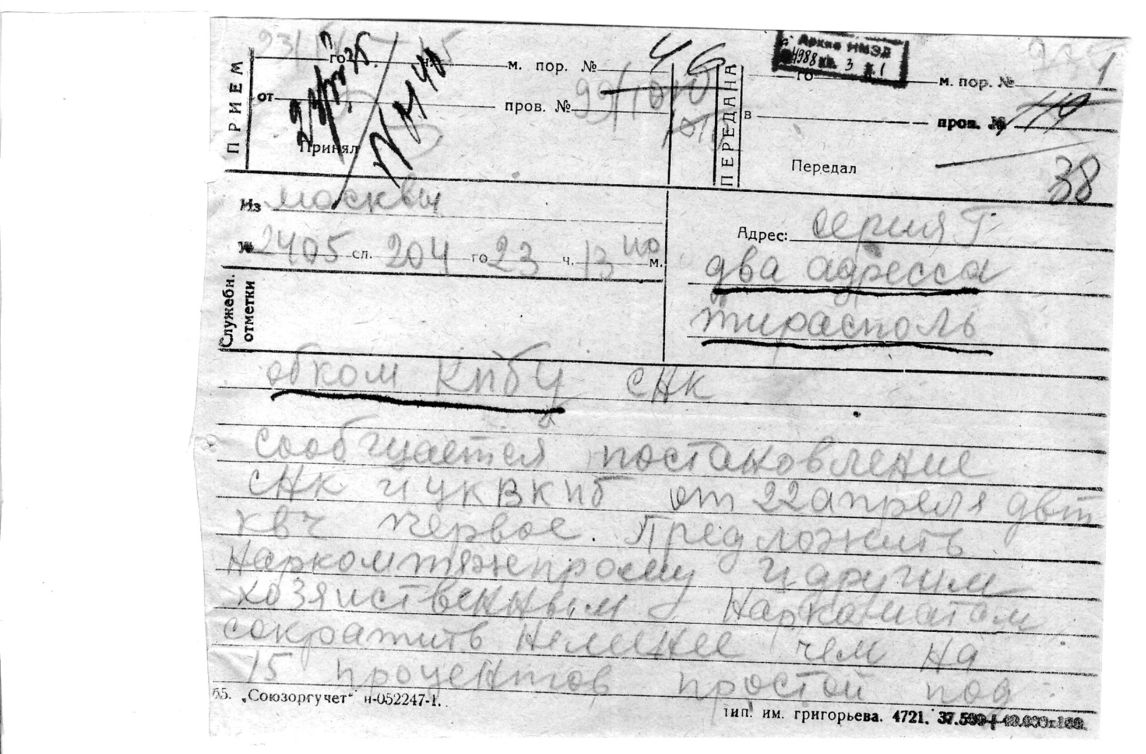 ПРИЕМ
го
м. пор. №
от
пров. № 99/1010
Принял
46
ПЕРЕДАНА
Архив НМЭД
го
м. пор. №
1
в
пров. №
Передал
38
Из москвы
№ 2405 сл. 204 го 23 ч. 13 м.
Служебн. отметки
Адрес: серия Г
два адресса
тирасполь
обком КПбУ СНК
сообщается постановление
СНК и ЦКВКПб от 22 апреля двт
квч первое. Предложить
Наркомтяжпрому и другим
хозяйственным Наркоматам
сократить неменее чем на
15 процентов простой под
65. „Союзоргучет“ н-052247-1.
тип. им. григорьева. 4721.